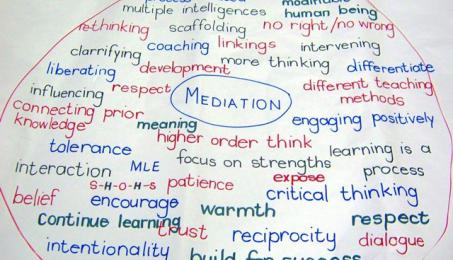 multiple intelligences
human being
rethinking scaffolding no right/no wrong
clarrifying coaching linkings intervening
liberating development more thinking differentiate
influencing respect MEDIATION different teaching
methods
connecting prior
knowledge meaning engaging positively
higher order think
tolerance focus on strengths learning is a
process
interaction MLE
S-H-O-H-S patience expose
belief encourage critical thinking
warmth
Continue learning respect
trust reciprocity dialogue
intentionality